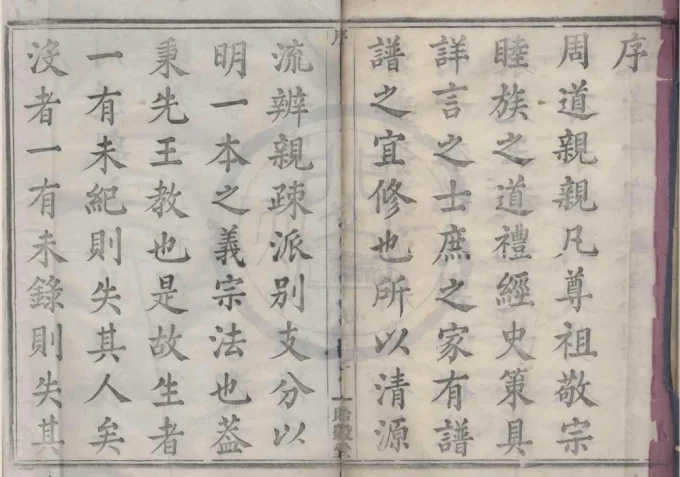 序
周道親親凡尊祖敬宗
睦族之道禮經史策具
詳言之士庶之家有譜
譜之宜修也所以清源
序
一
流辨親疎派別支分以
明一本之義宗法也葢
秉先王教也是故生者
一有未紀則失其人矣
沒者一有未錄則失其